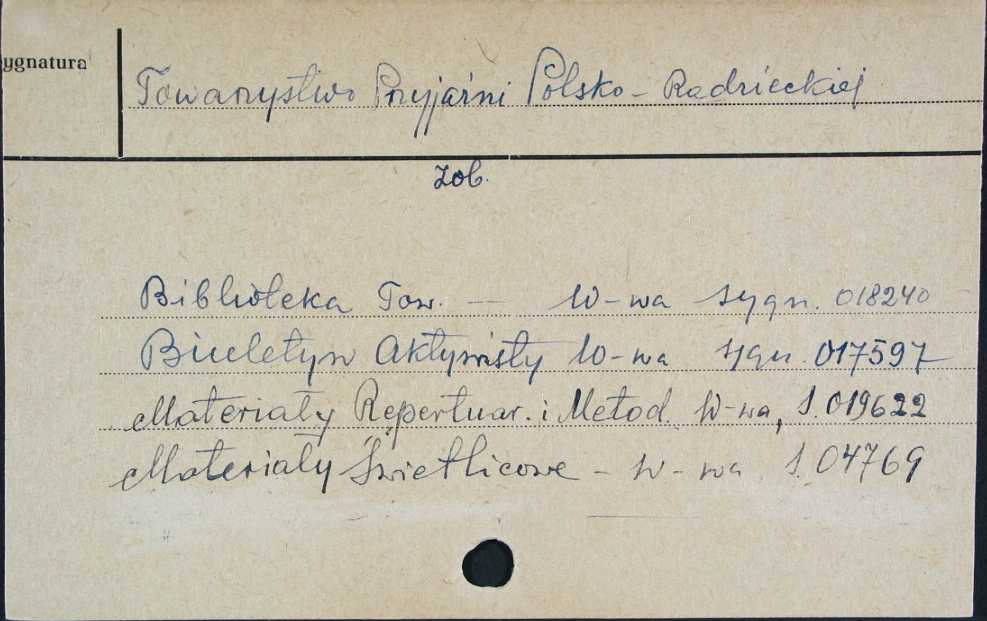 ygnatura
Towarzystwo Przyjaźni Polsko-Radzieckiej
zob.
Biblioteka Tow. — W-wa sygn. 018240
Biuletyn Aktywisty W-wa sygn. 017597
Materiały Repertuar. i Metod. W-wa, S. 019622
Materiały Świetlicowe - W-wa S. 04769